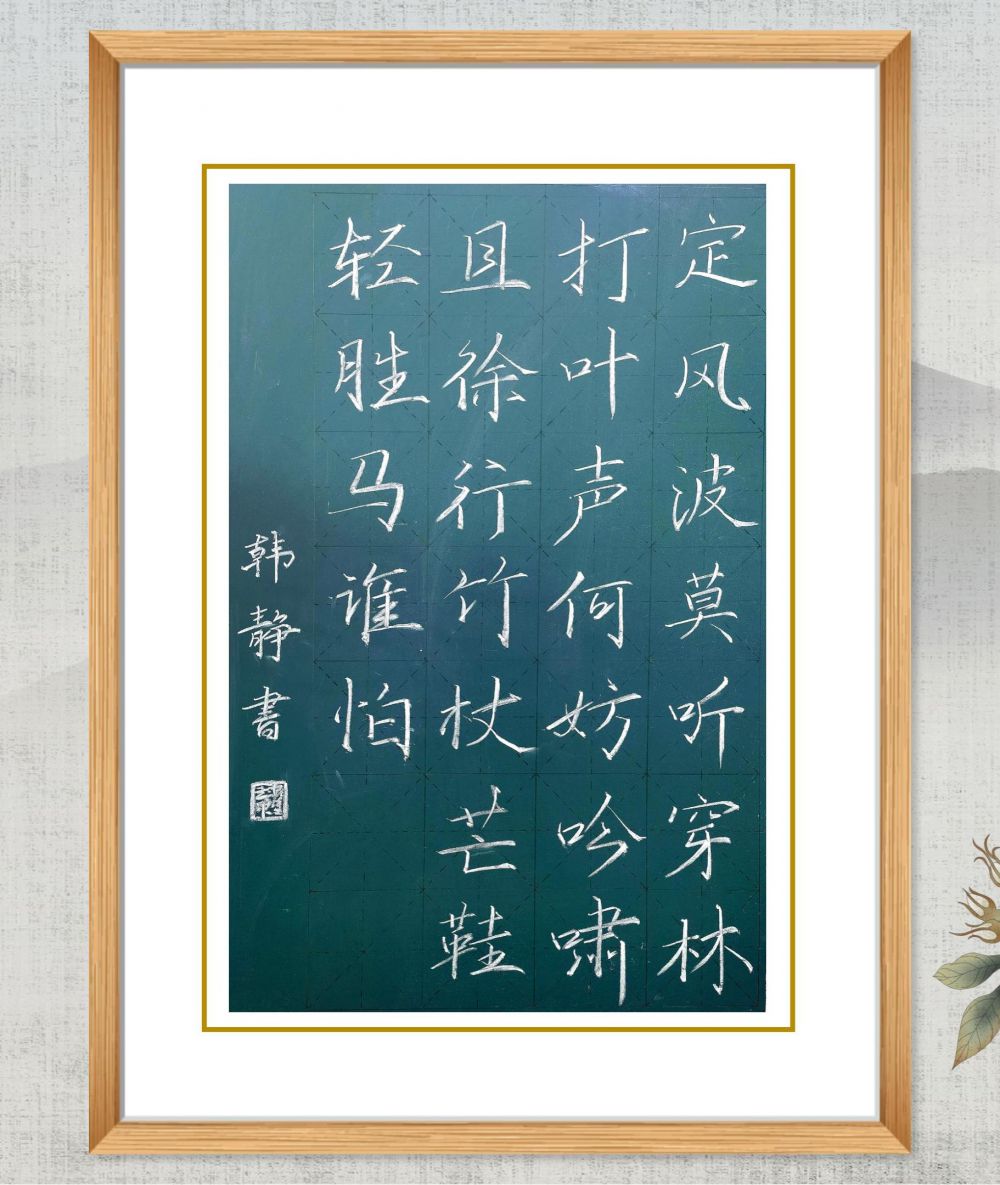 定风波莫听穿林
打叶声何妨吟啸
且徐行竹杖芒鞋
轻胜马谁怕
韩静书